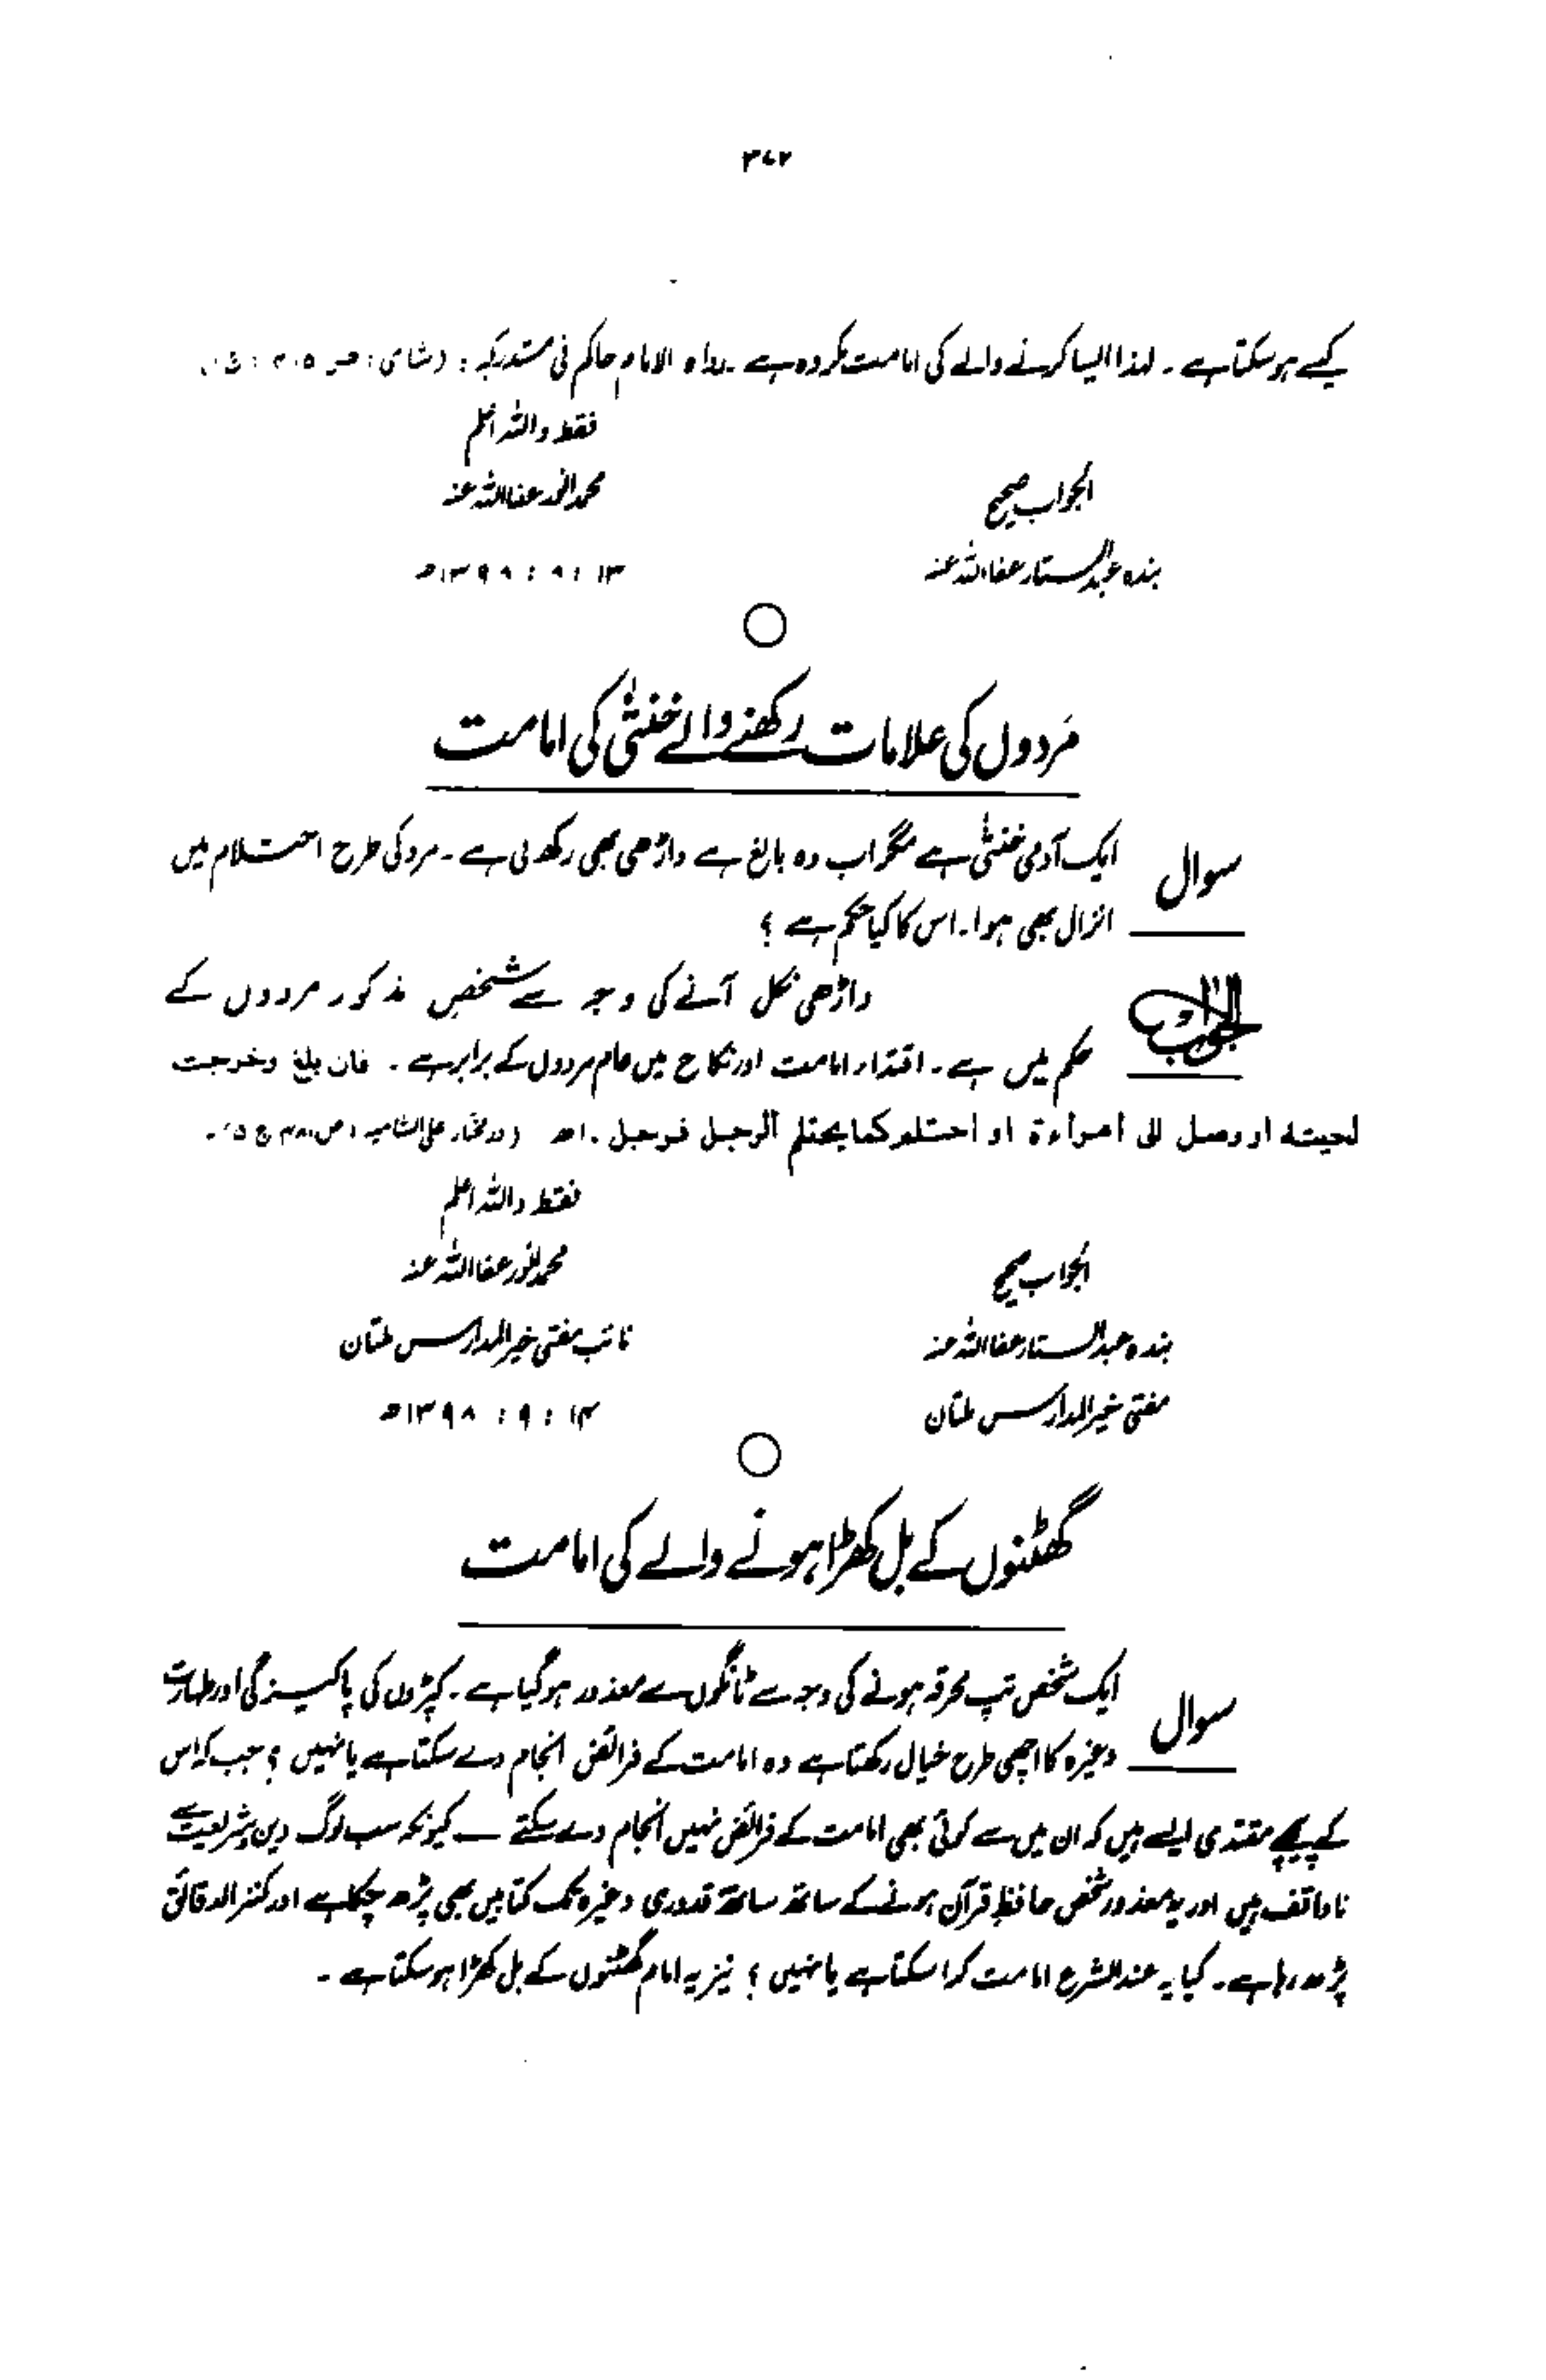 ۳۷۲
کیسے ہو سکتا ہے ۔ لہذا ایسا کرنے والے کی امامت مکروہ ہے ۔ رواہ الامام حاکم فی مستدرکہ : (شامی :
فقط واللہ اعلم
الجواب صحیح
محمد انور عفا اللہ عنہ
بندہ عبدالستار عفا اللہ عنہ
۱۳ : ۸ : ۱۳۹۸ھ
مَردوں کی علامات رکھنے والے خنثیٰ کی امامت
سوال ایک آدمی خنثیٰ ہے مگر اب وہ بالغ ہے داڑھی بھی رکھ لی ہے ۔ مرد کی طرح احتلام میں
انزال بھی ہوا ۔ اس کا کیا حکم ہے ؟
الجواب داڑھی نکل آنے کی وجہ سے شخصِ مذکور مردوں کے
حکم میں ہے ۔ اقتداء امامت اور نکاح میں عام مردوں کے برابر ہے ۔ فان بلغ وخرجت
لحیتہ او وصل الی امراءۃ او احتلم کما یحتلم الرجل فرجل ۔ اھ (درمختار علی الشامیہ
فقط واللہ اعلم
الجواب صحیح
محمد انور عفا اللہ عنہ
بندہ عبدالستار عفا اللہ عنہ
نائب مفتی خیر المدارس ملتان
مفتی خیر المدارس ملتان
۱۴ : ۹ : ۱۳۹۸ھ
گھٹنوں کے بل کھڑا ہونے والے کی امامت
سوال ایک شخص تپِ محرقہ ہونے کی وجہ سے ٹانگوں سے معذور ہو گیا ہے ۔ کپڑوں کی پاکیزگی اور طہارت
وغیرہ کا اچھی طرح خیال رکھتا ہے وہ امامت کے فرائض انجام دے سکتا ہے یا نہیں ؟ جب کہ اس
کے پیچھے مقتدی ایسے ہیں کہ ان میں سے کوئی بھی امامت کے فرائض نہیں انجام دے سکتے ــ کیونکہ سب لوگ دین و شریعت سے
ناواقف ہیں اور یہ معذور شخص حافظِ قرآن ہونے کے ساتھ ساتھ قدوری وغیرہ تک کتابیں بھی پڑھ چکا ہے اور کنز الدقائق
پڑھ رہا ہے ۔ کیا یہ عند الشرع امامت کرا سکتا ہے یا نہیں ؟ نیز یہ امام گھٹنوں کے بل کھڑا ہو سکتا ہے ۔